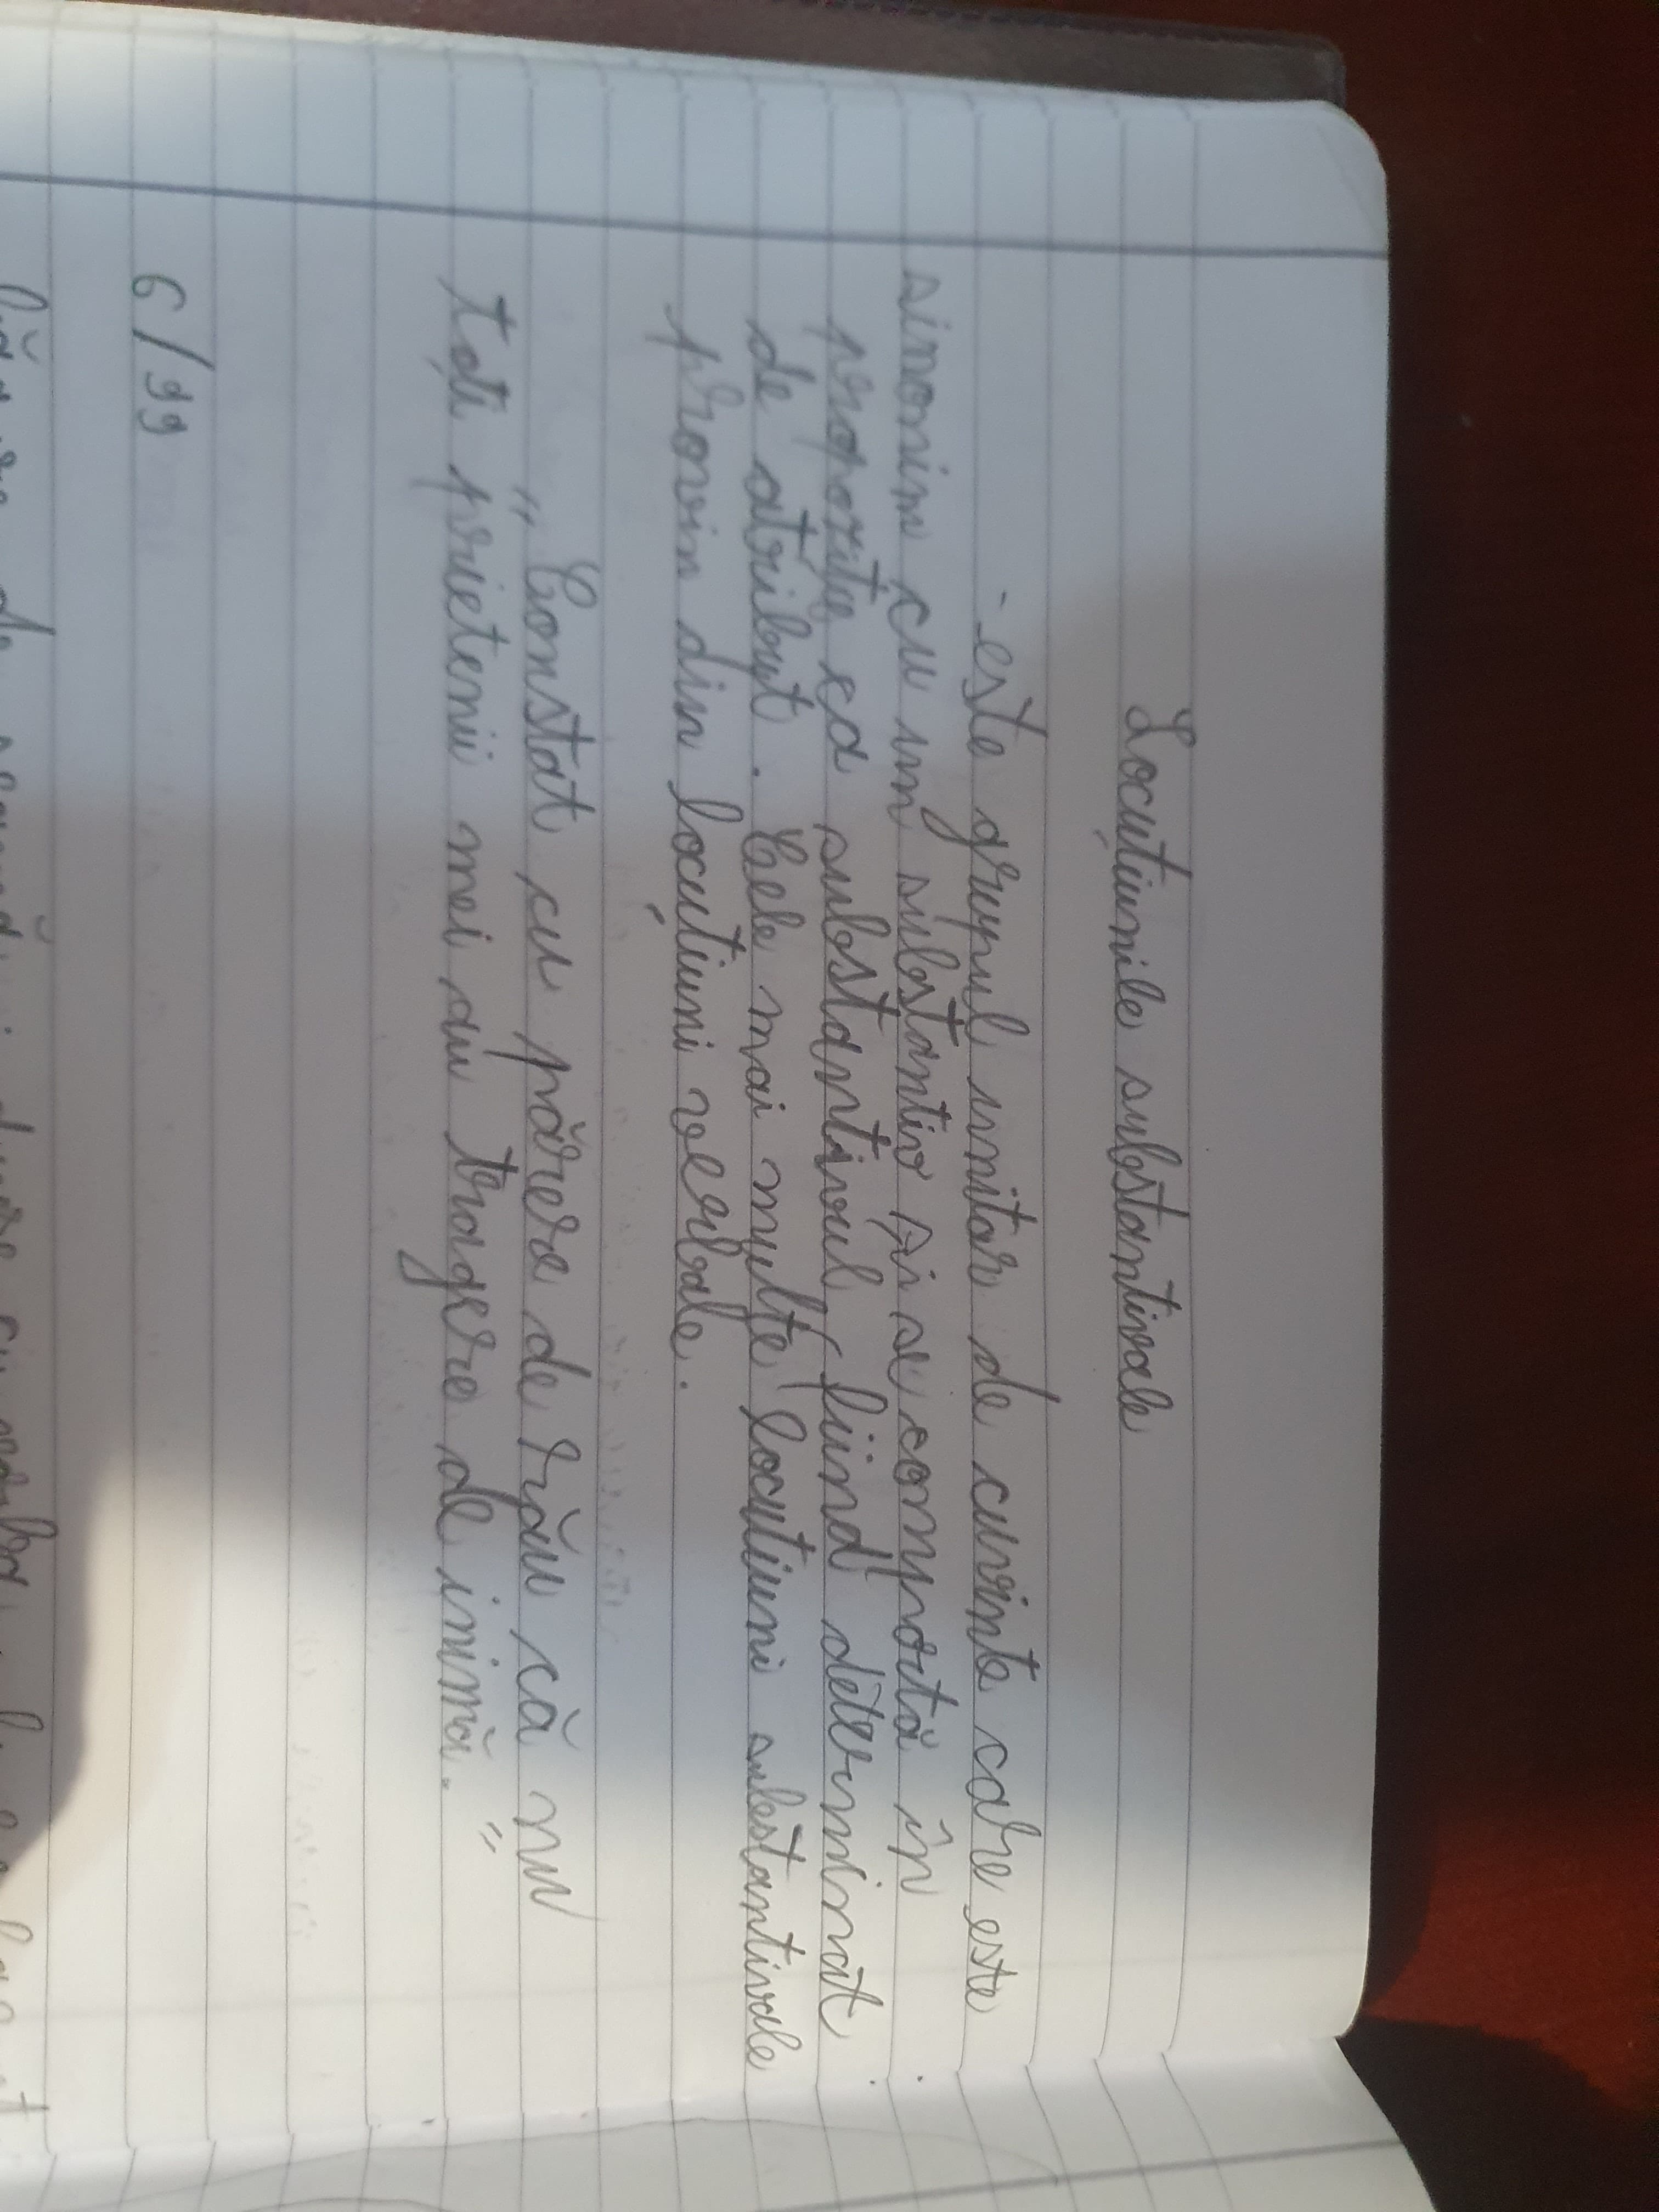 Locuțiunile substantivale
- este grupul unitar de cuvinte care este
sinonim cu un substantiv și se comportă în
propoziție ca substantivul, fiind determinat
de atribut. Cele mai multe locutiuni substantivale
provin din locuțiuni verbale.
„Constat cu părere de rău că nu
toți prietenii mei au tragere de inimă."
6/99